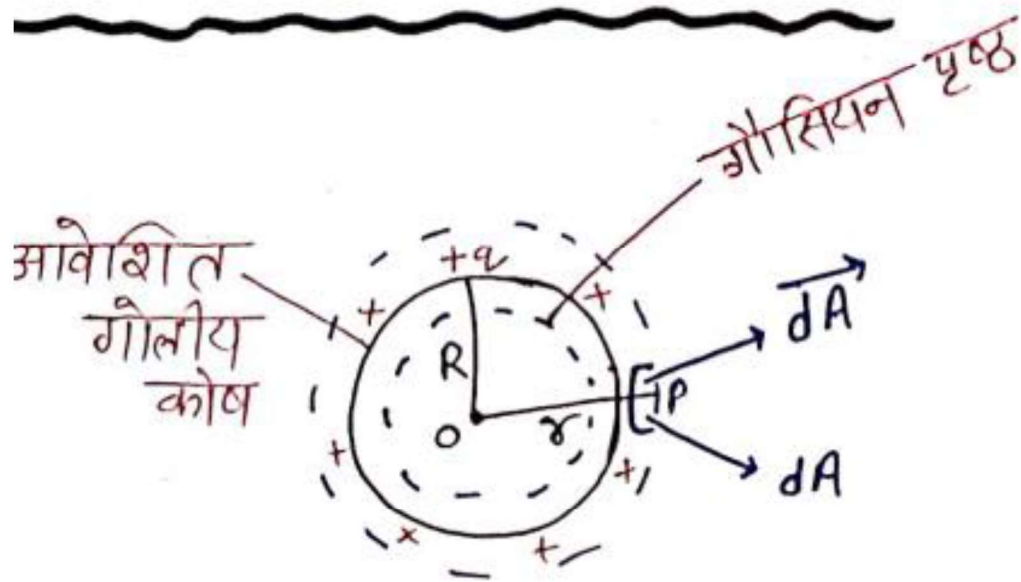 गौसियन पृष्ठ
आवेशित
गोलीय
कोष
+q
+
+
R
O
r
P
dA
dA
+
+
x
+